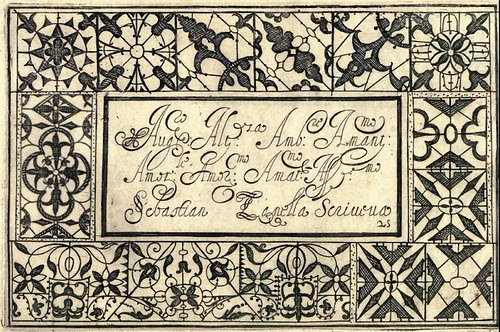 Aug.^co Alt.^za Amb.^re Amant.^mo
Amor.^le Amor.^mo Amat.^mo Aff.^mo
Sebastian Zanella Scriueua
25